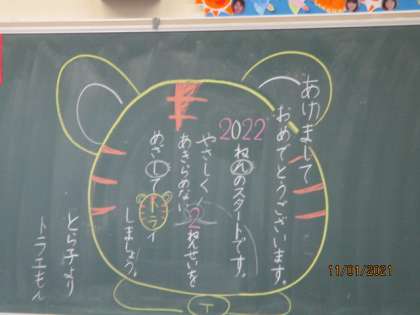 あけまして
おめでとうございます。
2022
ねんのスタートです。
やさしく、
あきらめない
2ねんせいを
めざして
トライ
しましょう。
とら子より
トラエもん
11/01/2021